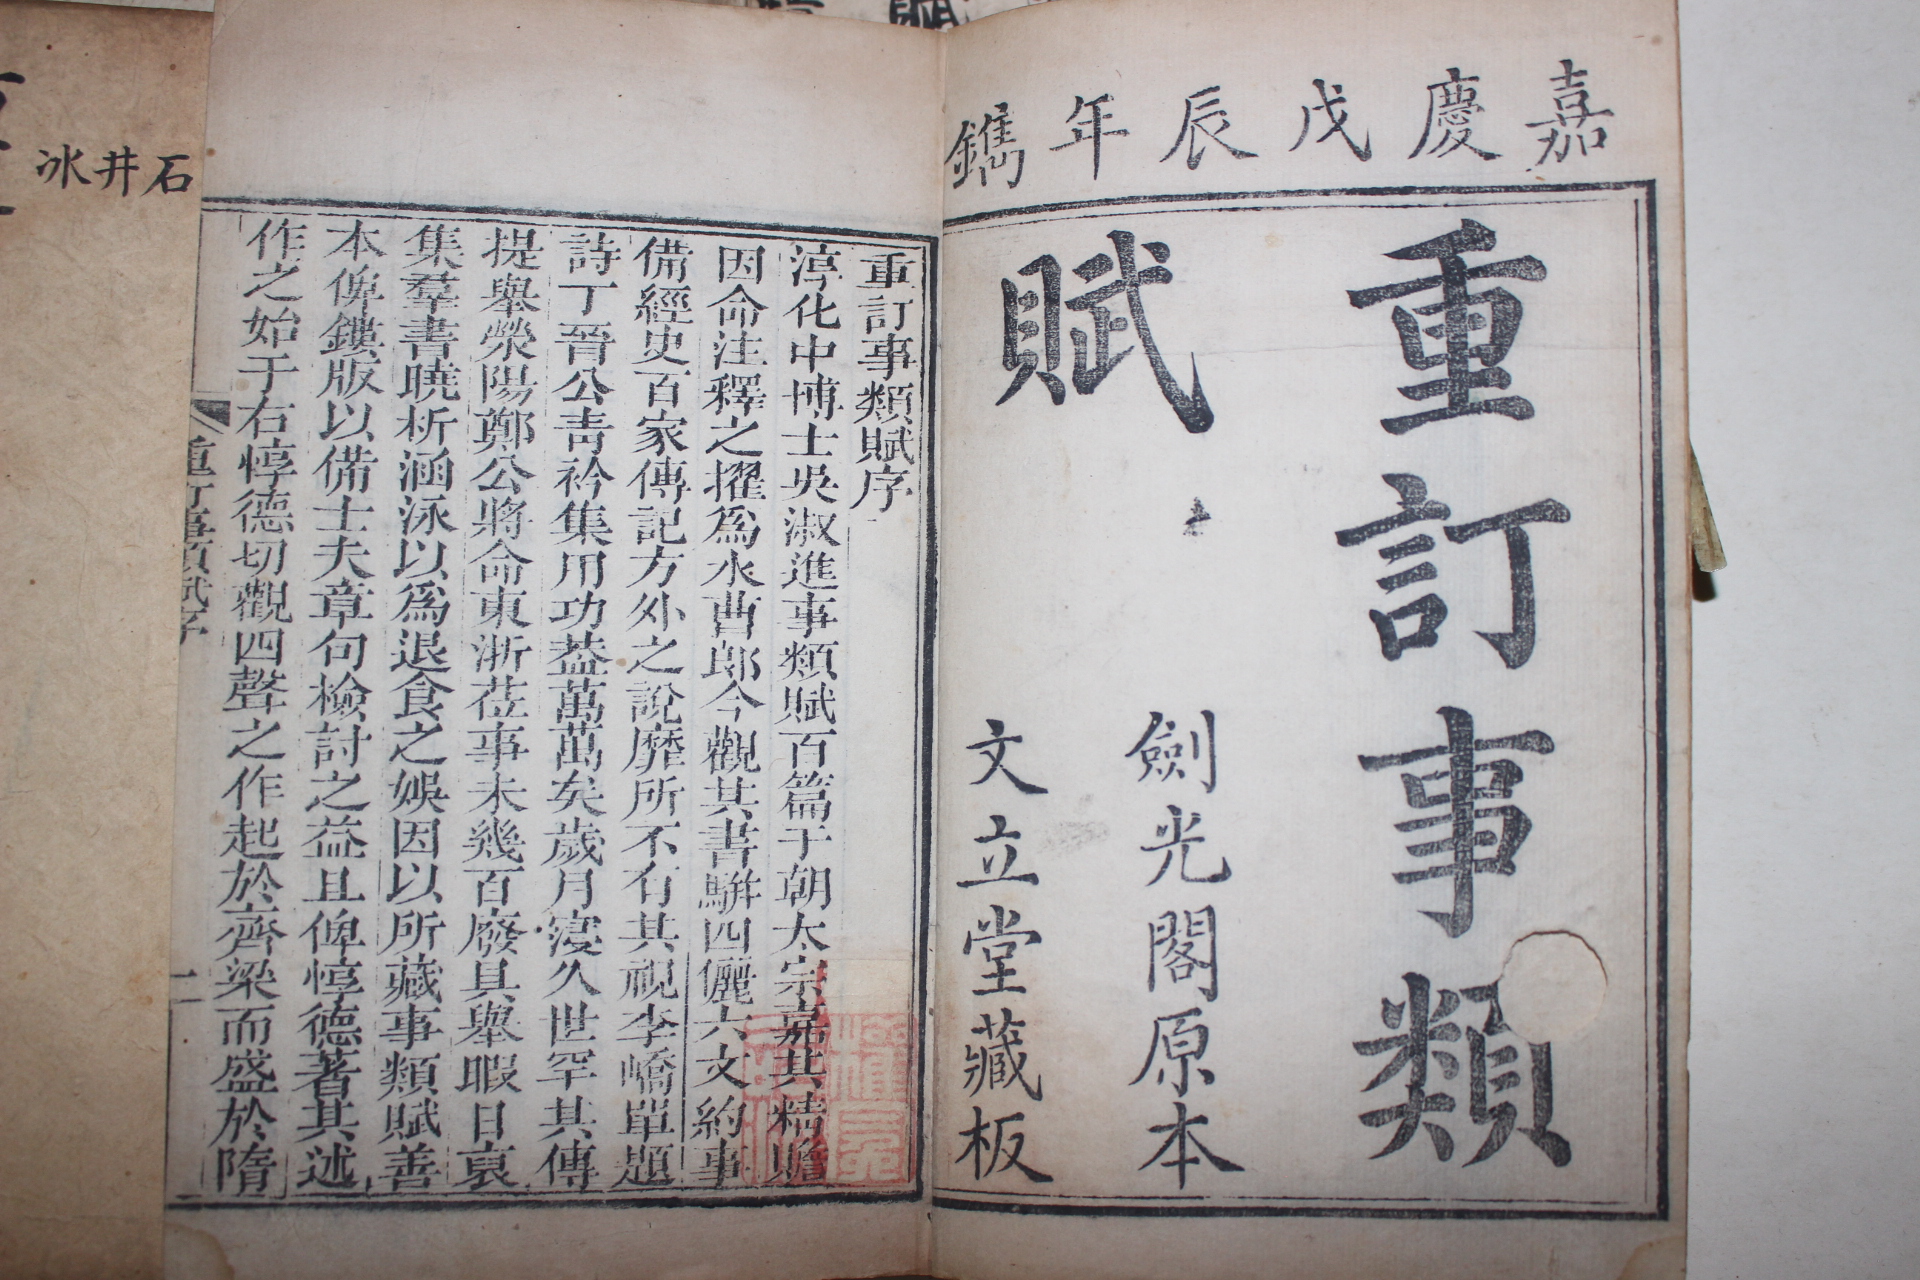 嘉慶戊辰年鐫
重訂事類
賦
劍光閣原本
文立堂藏板
重訂事類賦序
淳化中博士吳淑進事類賦百篇于朝太宗嘉其精贍
因命注釋之擢爲水曹郎今觀其書駢四儷六文約事
備經史百家傳記方外之說靡所不有其視李嶠單題
詩丁晉公青衿集用功葢萬萬矣歲月寖久世罕其傳
提舉滎陽鄭公將命東浙莅事未幾百廢具舉暇日裒
集羣書曉析涵泳以爲退食之娛因以所藏事類賦善
本俾鏤版以備士夫章句檢討之益且俾惇德著其述
作之始于右惇德切觀四聲之作起於齊梁而盛於隋
重訂事類賦序
一
石井冰